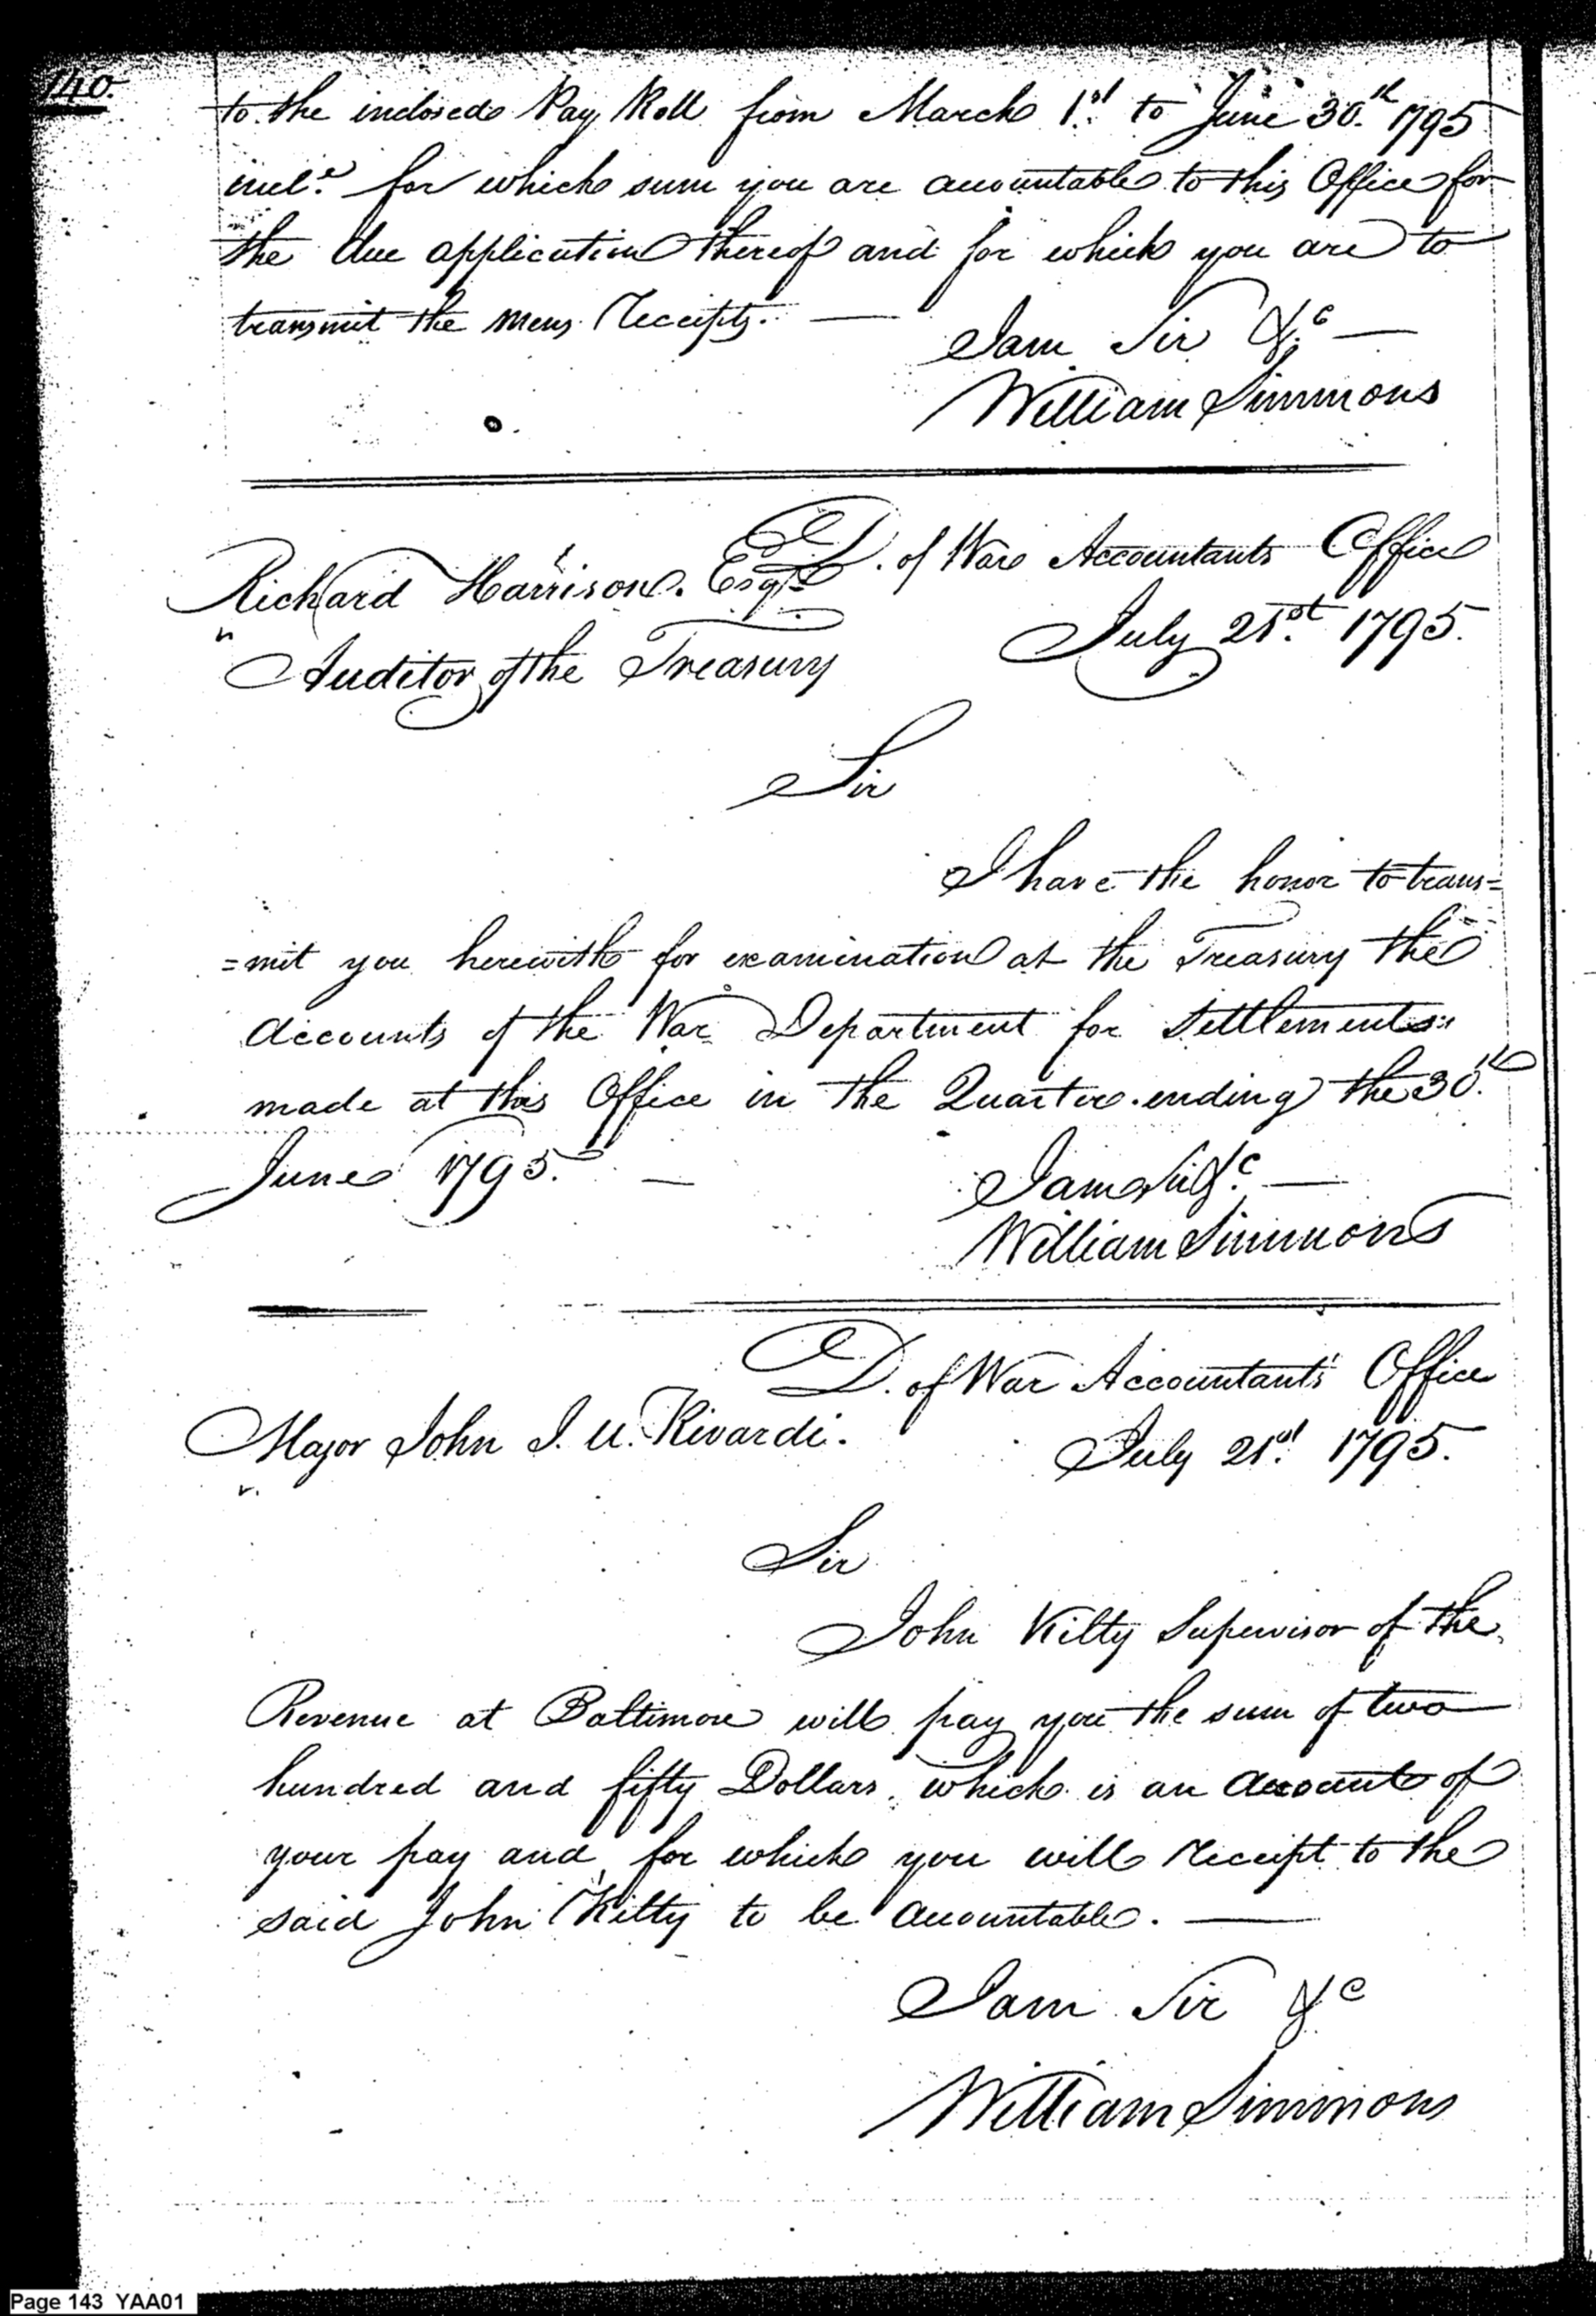 140.
to the inclosed Pay Roll from March 1st to June 30th 1795
incle. for which sum you are accountable to this Office for
the due application thereof and for which you are to
transmit the mens Receipts. —
I am Sir &c —
William Simmons
D. of War Accountants Office
Richard Harrison. Esqr.
July 21st. 1795.
Auditor of the Treasury
Sir
I have the honor to trans=
=mit you herewith for examination at the Treasury the
Accounts of the War Department for Settlements
made at this Office in the Quarter ending the 30th
June 1795. —
I am Sir &c. —
William Simmons
D. of War Accountant's Office
Major John J. U. Rivardi.
July 21st. 1795.
Sir
John Kilty Supervisor of the
Revenue at Baltimore will pay you the sum of two
hundred and fifty Dollars, which is on Account of
your pay and for which you will receipt to the
said John Kilty to be accountable. —
I am Sir &c
William Simmons
Page 143 YAA01